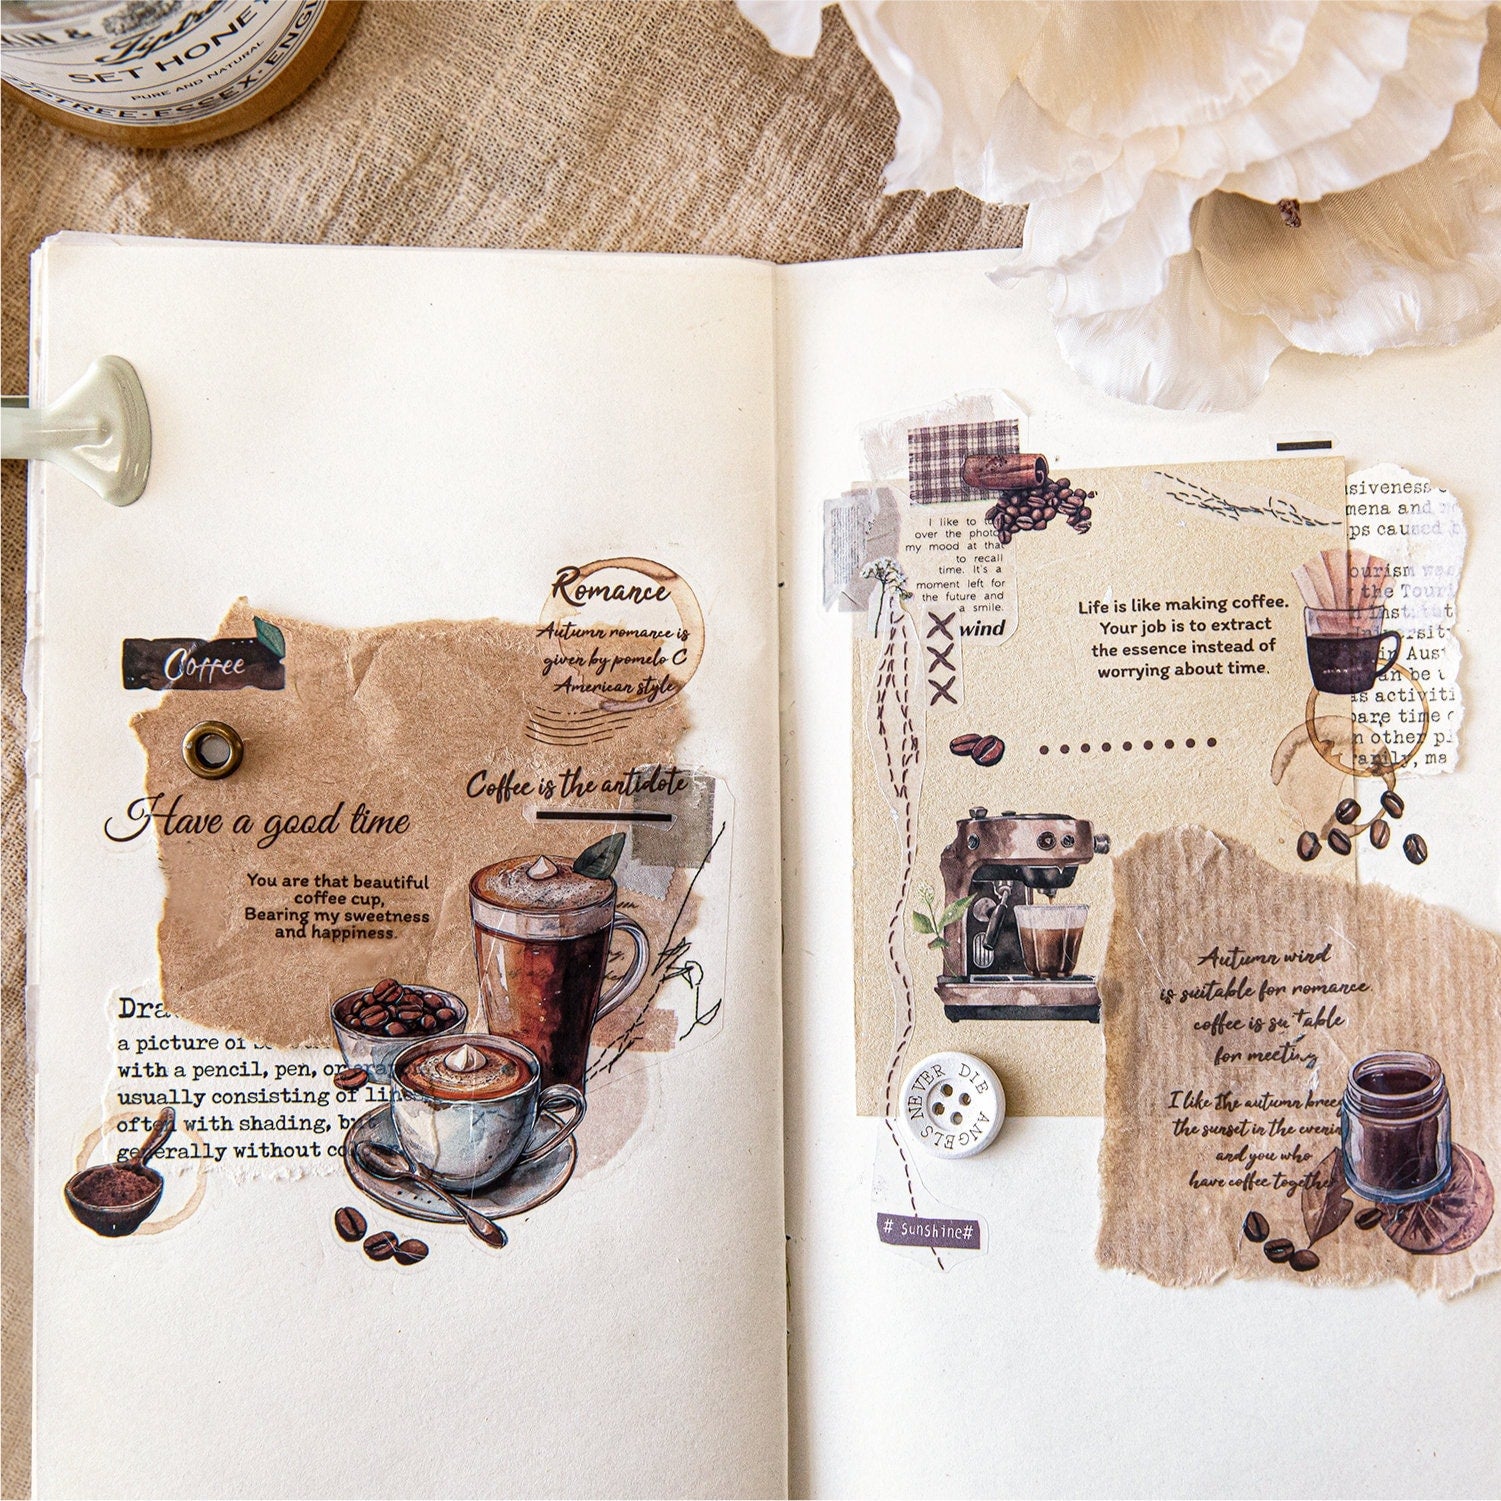 SET HONEY
PURE AND NATURAL
ESSEX
Coffee
Romance
Autumn romance is
given by pomelo C
American style
Coffee is the antidote
Have a good time
You are that beautiful
coffee cup,
Bearing my sweetness
and happiness.
a picture of
with a pencil, pen, or
usually consisting of
often with shading,
generally without
I like to
over the photo
my mood at that
to recall
time. It's a
moment left for
the future and
a smile.
XXX
wind
Life is like making coffee.
Your job is to extract
the essence instead of
worrying about time.
siveness
mena and
ps caused
ourism
the
in Aus
an be
as activiti
pare time
n other
Autumn wind
is suitable for romance.
coffee is suitable
for meeting
I like the autumn breez
the sunset in the evenin
and you who
have coffee together
ANGELS NEVER DIE
# sunshine#